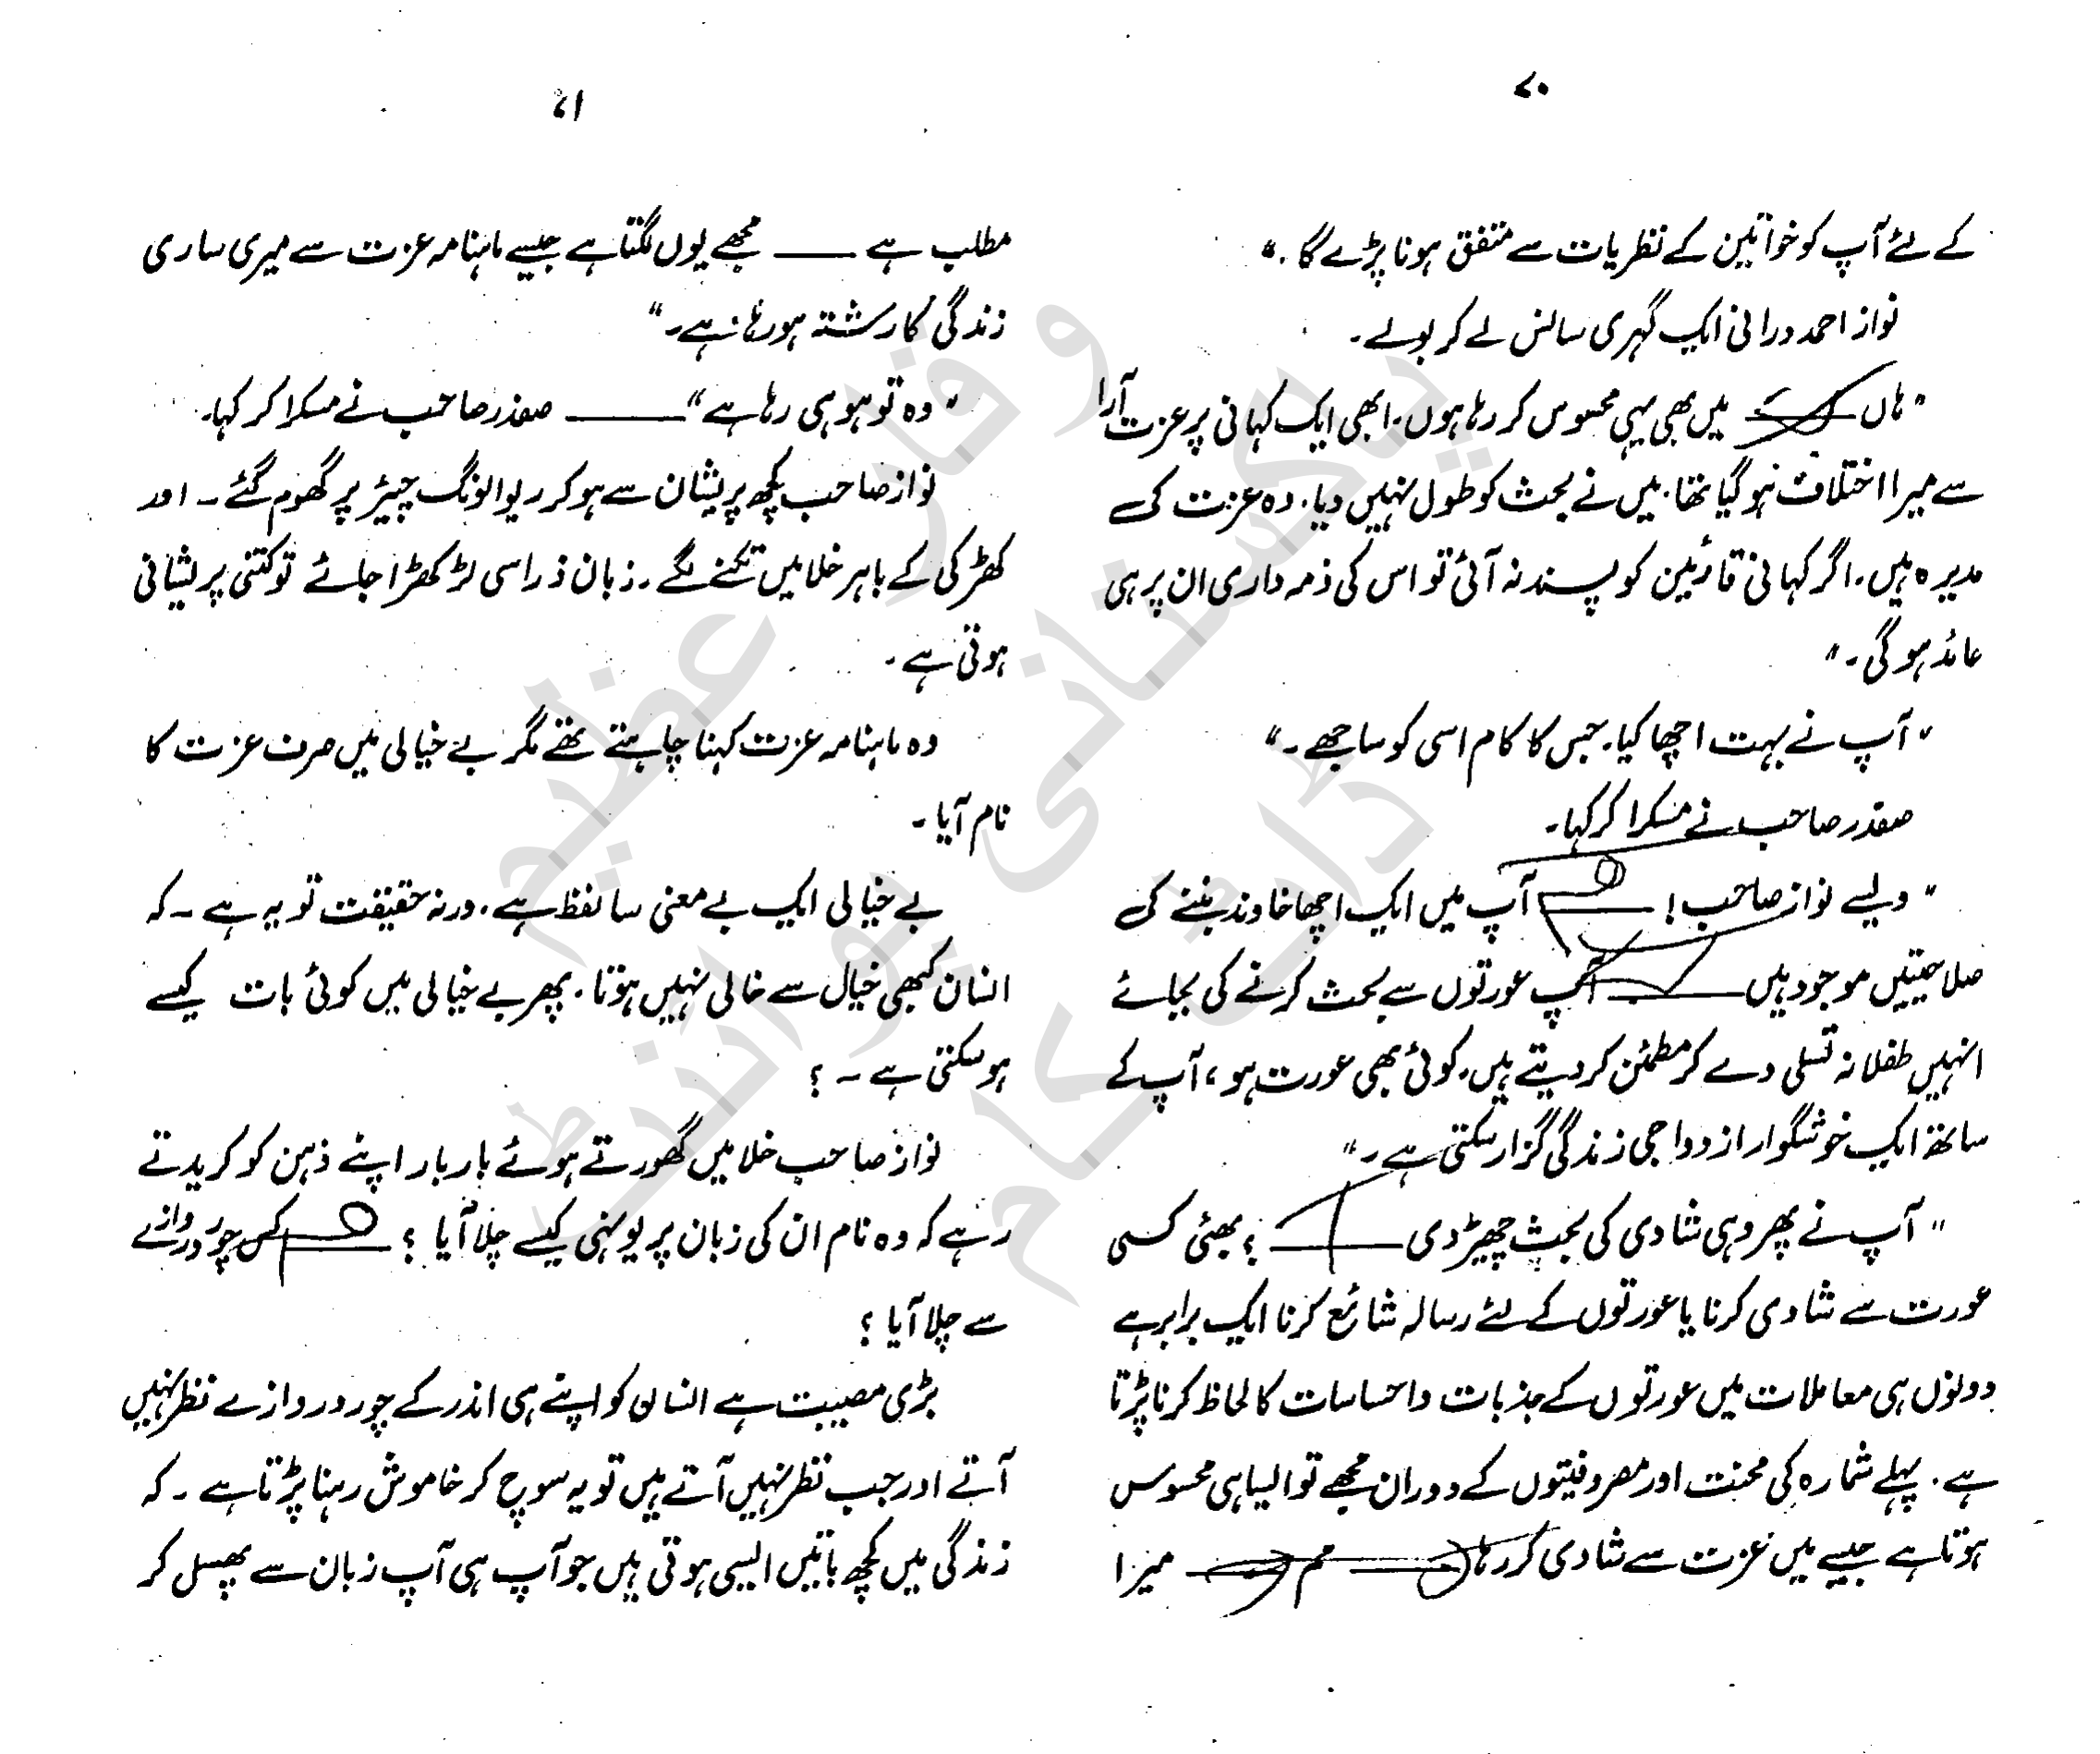 ۷۰
کے لئے آپ کو خواتین کے نظریات سے متفق ہونا پڑے گا۔"
نواز احمد درانی ایک گہری سانس لے کر بولے۔
"ہاں ——— میں بھی یہی محسوس کر رہا ہوں۔ ابھی ایک کہانی پر عزت آرا
سے میرا اختلاف ہو گیا تھا۔ میں نے بحث کو طول نہیں دیا۔ وہ عزت کی
مدیرہ ہیں۔ اگر کہانی قارئین کو پسند نہ آئی تو اس کی ذمہ داری ان پر ہی
عائد ہو گی۔"
"آپ نے بہت اچھا کیا۔ جس کا کام اسی کو ساجھے۔"
صفدر صاحب نے مسکرا کر کہا۔
"ویسے نواز صاحب! ——— آپ میں ایک اچھا خاوند بننے کی
صلاحیتیں موجود ہیں ——— آپ عورتوں سے بحث کرنے کی بجائے
انہیں طفلانہ تسلی دے کر مطمئن کر دیتے ہیں۔ کوئی بھی عورت ہو، آپ کے
ساتھ ایک خوشگوار ازدواجی زندگی گزار سکتی ہے۔"
"آپ نے پھر وہی شادی کی بحث چھیڑ دی ——— ؟ بھئی کسی
عورت سے شادی کرنا یا عورتوں کے لئے رسالہ شائع کرنا ایک برابر ہے
دونوں ہی معاملات میں عورتوں کے جذبات و احساسات کا لحاظ کرنا پڑتا
ہے۔ پہلے شمارہ کی محنت اور مصروفیتوں کے دوران مجھے تو ایسا ہی محسوس
ہوتا ہے جیسے میں عزت سے شادی کر رہا ——— مم ——— میرا
۷۱
مطلب ہے ——— مجھے یوں لگتا ہے جیسے ماہنامہ عزت سے میری ساری
زندگی کا رشتہ ہو رہا ہے۔"
"وہ تو ہو ہی رہا ہے" ——— صفدر صاحب نے مسکرا کر کہا۔
نواز صاحب کچھ پریشان سے ہو کر ریوالونگ چیئر پر گھوم گئے۔ اور
کھڑکی کے باہر خلا میں تکنے لگے۔ زبان ذرا سی لڑکھڑا جائے تو کتنی پریشانی
ہوتی ہے۔
وہ ماہنامہ عزت کہنا چاہتے تھے مگر بے خیالی میں صرف عزت کا
نام آیا۔
بے خیالی ایک بے معنی سا لفظ ہے۔ ورنہ حقیقت تو یہ ہے۔ کہ
انسان کبھی خیال سے خالی نہیں ہوتا۔ پھر بے خیالی میں کوئی بات کیسے
ہو سکتی ہے۔ ؟
نواز صاحب خلا میں گھورتے ہوئے بار بار اپنے ذہن کو کریدتے
رہے کہ وہ نام ان کی زبان پر یونہی کیسے چلا آیا ؟ ——— کس چور دروازے
سے چلا آیا ؟
بڑی مصیبت ہے انسان کو اپنے ہی اندر کے چور دروازے نظر نہیں
آتے اور جب نظر نہیں آتے ہیں تو یہ سوچ کر خاموش رہنا پڑتا ہے۔ کہ
زندگی میں کچھ باتیں ایسی ہوتی ہیں جو آپ ہی آپ زبان سے پھسل کر
وقار عظیم
پاکستانی پوائنٹ
ڈاٹ کام